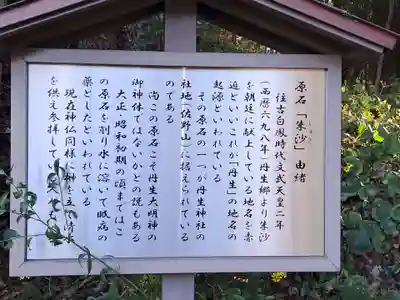 原石「朱沙」由緒
しゅさ
往古白鳳時代文武天皇二年
(西暦六九八年)丹生郷より朱沙
を朝廷に献上している地名を赤
迫といいこれが「丹生」の地名の
起源といわれている
その原石の一つが丹生神社の
社地(佐野山)に据えられている
のである
尚この原石こそ丹生大明神の
御神体ではないかとの説もある
大正、昭和初期の頃まではこ
の原石を割り水に溶いて眼病の
薬としたといわれている
現在神仏同様に榊を立て清
を供え参拝して